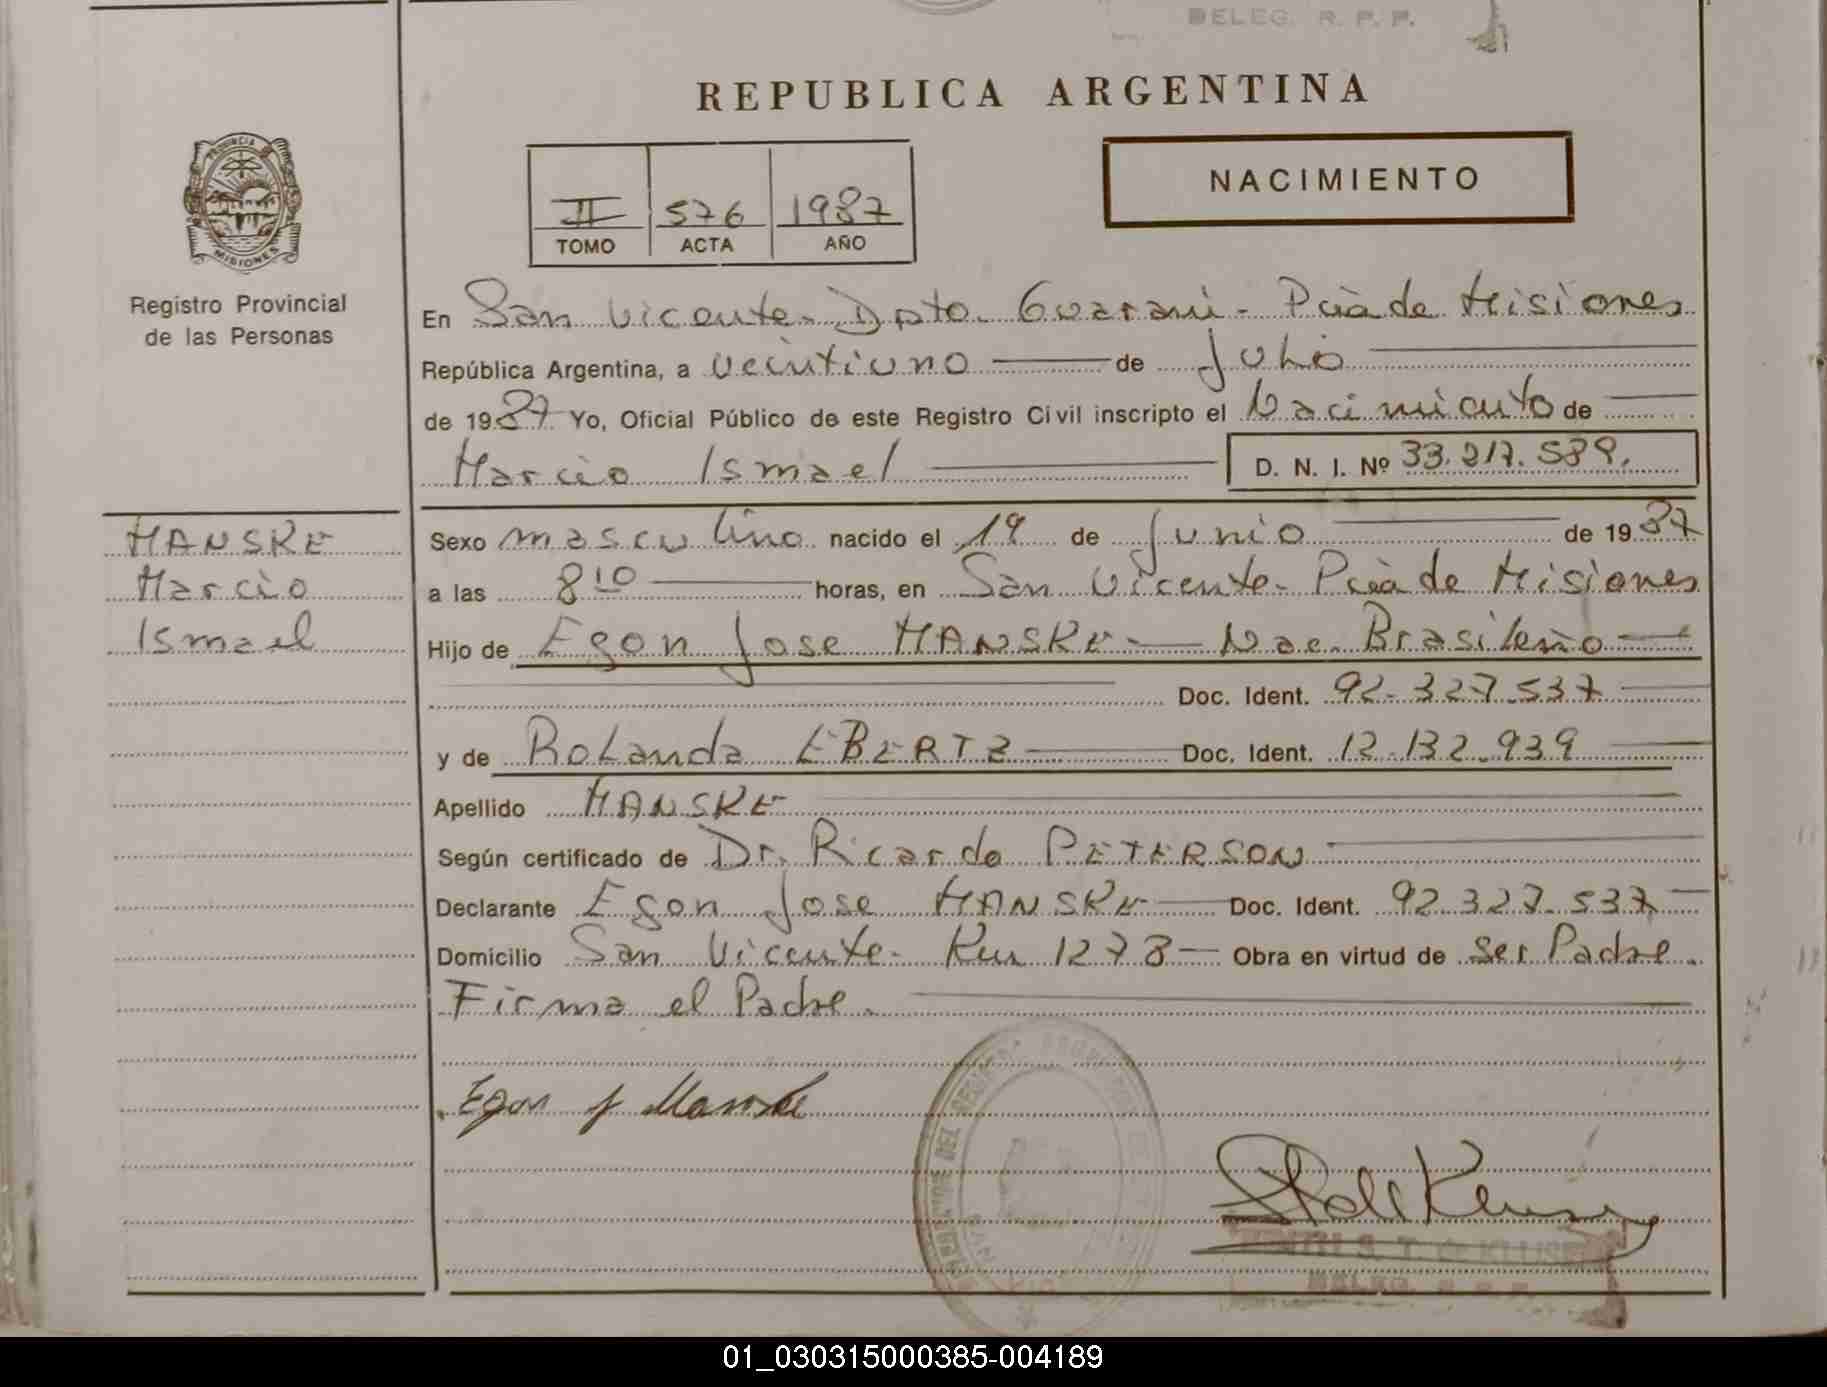 DELEG. R. P. P.
REPUBLICA ARGENTINA
PROVINCIA
MISIONES
Registro Provincial
de las Personas
II 576 1987
TOMO ACTA AÑO
NACIMIENTO
En San Vicente. Dpto. Guarani - Pcia de Misiones
República Argentina, a veintiuno de Julio
de 1987 Yo, Oficial Público de este Registro Civil inscripto el Nacimiento de
Marcio Ismael D. N. I. Nº 33.217.589.
HANSKE
Marcio
Ismael
Sexo masculino nacido el 19 de Junio de 1987
a las 8 10 horas, en San Vicente - Pcia de Misiones
Hijo de Egon Jose HANSKE - Nac. Brasileño
Doc. Ident. 92.327.537
y de Rolanda EBERTZ Doc. Ident. 12.132.939
Apellido HANSKE
Según certificado de Dr. Ricardo PETERSON
Declarante Egon Jose HANSKE Doc. Ident. 92.327.537
Domicilio San Vicente - Km 1278 Obra en virtud de ser Padre.
Firma el Padre.
Egon J Hanske
S. T. de KLUSE
DELEG. R. P. P.
01_030315000385-004189